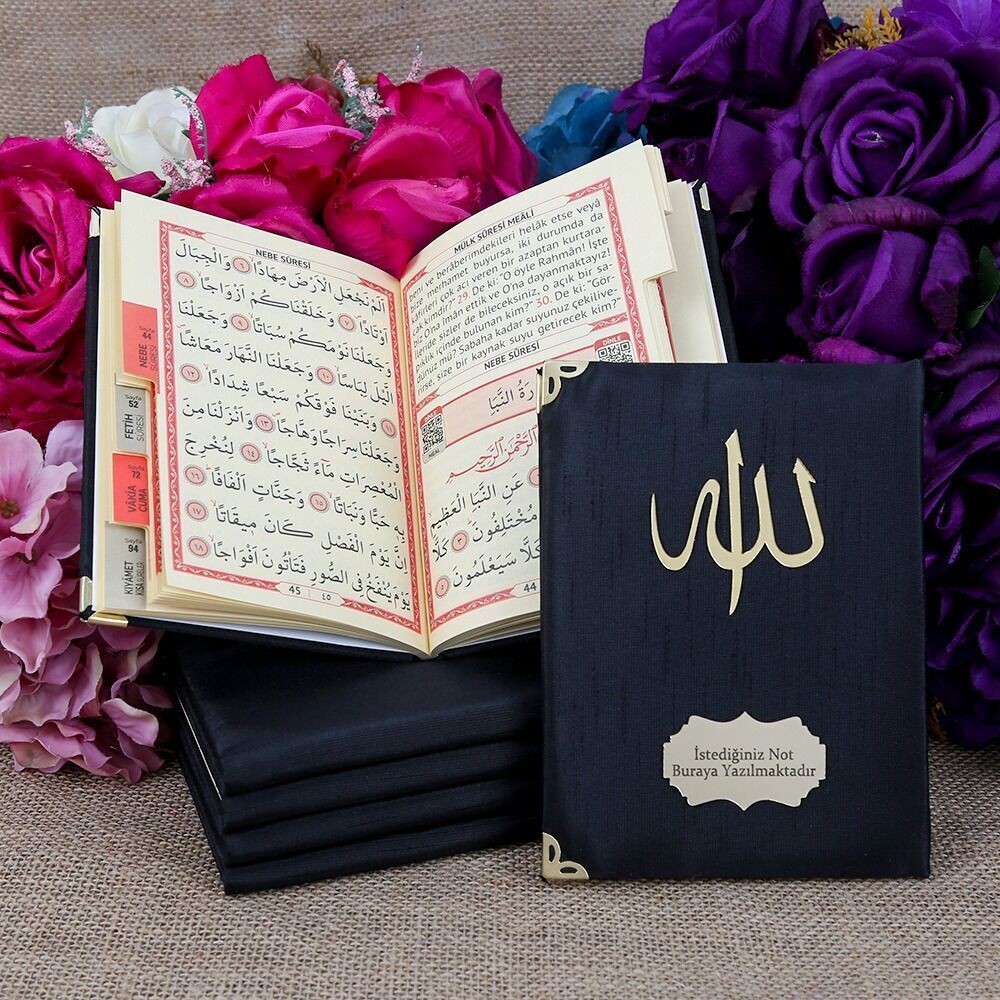 NEBE SÛRESİ
اَلَمْ نَجْعَلِ الْاَرْضَ مِهَادًاۙ ﴿٦﴾ وَالْجِبَالَ
اَوْتَادًاۖ ﴿٧﴾ وَخَلَقْنَاكُمْ اَزْوَاجًاۙ ﴿٨﴾
وَجَعَلْنَا نَوْمَكُمْ سُبَاتًاۙ ﴿٩﴾ وَجَعَلْنَا
الَّيْلَ لِبَاسًاۙ ﴿١٠﴾ وَجَعَلْنَا النَّهَارَ مَعَاشًاۖ
﴿١١﴾ وَبَنَيْنَا فَوْقَكُمْ سَبْعًا شِدَادًاۙ ﴿١٢﴾
وَجَعَلْنَا سِرَاجًا وَهَّاجًاۖ ﴿١٣﴾ وَاَنْزَلْنَا مِنَ
الْمُعْصِرَاتِ مَٓاءً ثَجَّاجًاۙ ﴿١٤﴾ لِنُخْرِجَ
بِه۪ حَبًّا وَنَبَاتًاۙ ﴿١٥﴾ وَجَنَّاتٍ اَلْفَافًاۜ ﴿١٦﴾
اِنَّ يَوْمَ الْفَصْلِ كَانَ م۪يقَاتًاۙ ﴿١٧﴾
يَوْمَ يُنْفَخُ فِي الصُّورِ فَتَأْتُونَ اَفْوَاجًاۙ ﴿١٨﴾
45 ٤٥
Sayfa
44
NEBE
SÛRESİ
Sayfa
52
FETİH
SÛRESİ
Sayfa
72
VÂKIA
CUMA
Sayfa
94
KIYÂMET
KISA SÛRELER
MÜLK SÛRESİ MEÂLİ
ve berâberimdekileri helâk etse veyâ
bize merhamet buyursa, iki durumda da
kâfirleri çok acı veren bir azaptan kurtara-
cak kimdir?" 29. De ki: "O öyle Rahmân! İşte
biz O'na îmân ettik ve O'na dayanmaktayız!
İleride sizler de bileceksiniz, o açık bir sa-
pıklık içinde bulunan kim?" 30. De ki: "Gör-
dünüz mü? Sabaha kadar suyunuz çekiliver-
irse, size bir kaynak suyu getirecek kim?
NEBE SÛRESİ
DİNLE
DİNLE
MEAL
رَةُ النَّبَأِ
الرَّحْمٰنِ الرَّح۪يمِ
عَنِ النَّبَأِ الْعَظ۪يمِ
مُخْتَلِفُونَ ﴿٣﴾ كَلَّا
كَلَّا سَيَعْلَمُونَ ﴿٥﴾
44
الله
İstediğiniz Not
Buraya Yazılmaktadır